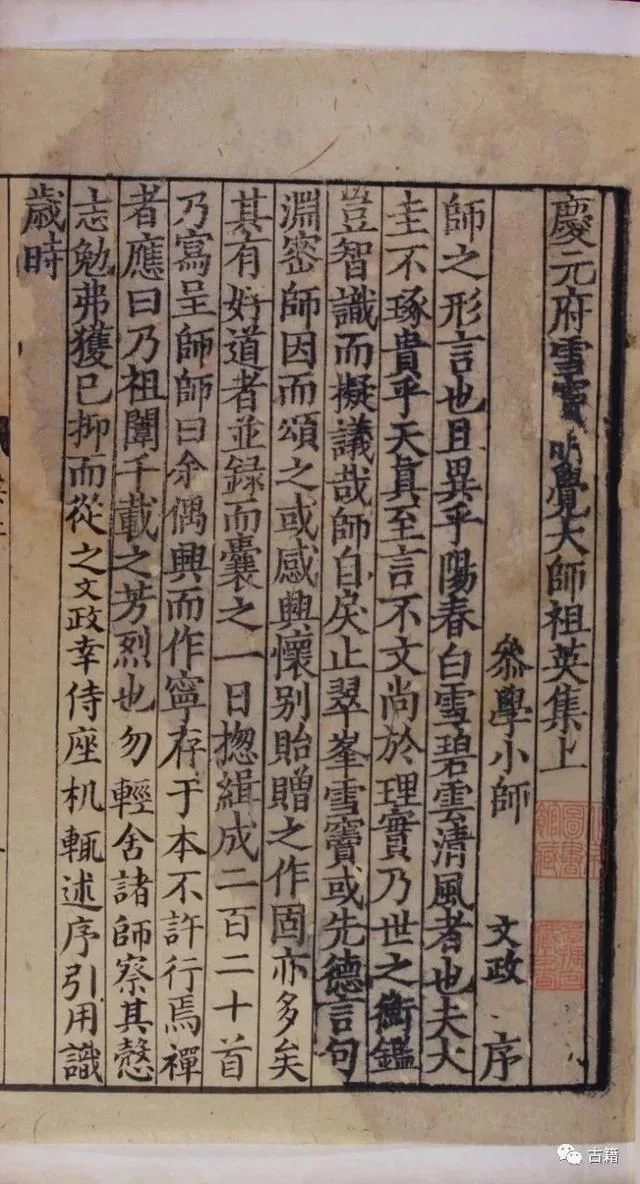 慶元府雪竇明覺大師祖英集上
叅學小師 文政 序
師之形言也且異乎陽春白雪碧雲清風者也夫大
圭不琢貴乎天真至言不文尚於理實乃世之衡鑑
豈智識而擬議哉師自戾止翠峯雪竇或先德言句
淵密師因而頌之或感興懷別貽贈之作固亦多矣
其有好道者並録而囊之一日揔緝成二百二十首
乃寫呈師師曰余偶興而作寧存于本不許行焉禪
者應曰乃祖闡千載之芳烈也勿輕舍諸師察其慤
志勉弗獲已抑而從之文政幸侍座机輒述序引用識
歲時
古籍